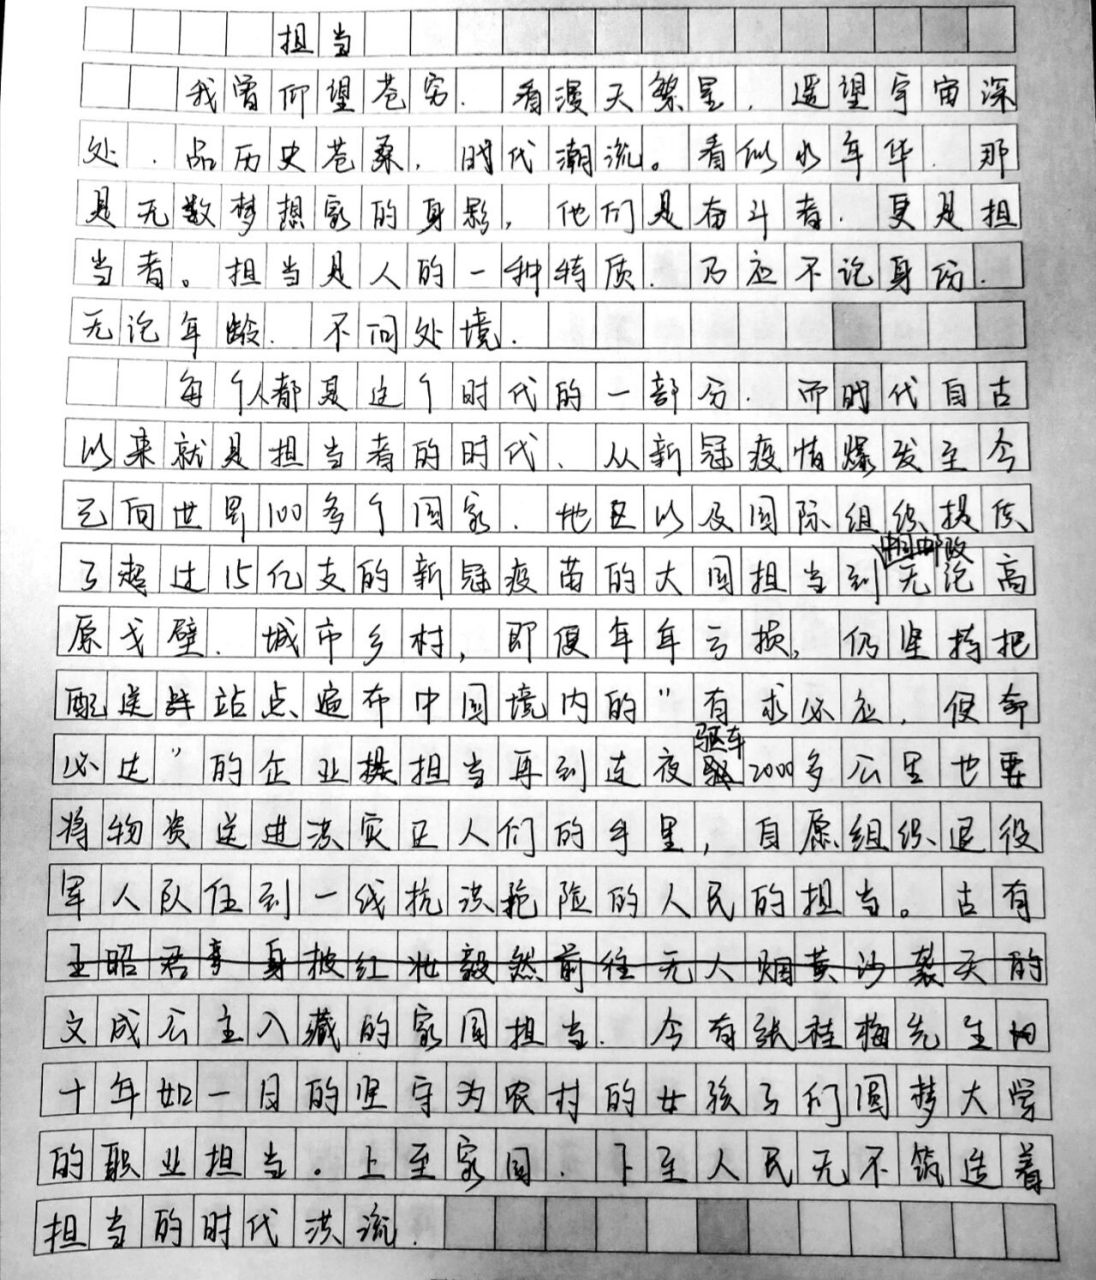 担当
我曾仰望苍穷.看漫天繁星,遥望宇宙深
处.品历史苍桑,时代潮流。看似水年华.那
是无数梦想家的身影,他们是奋斗者.更是担
当者。担当是人的一种特质.乃应不论身份.
无论年龄.不问处境.
每个人都是这个时代的一部分.而时代自古
以来就是担当者的时代、从新冠疫情爆发至今
已向世界100多个国家.地区以及国际组织提供
中国邮政
了超过15亿支的新冠疫苗的大国担当到无论高
原戈壁.城市乡村,即便年年亏损,仍坚持把
配送站点遍布中国境内的"有求必应,使命
驱车
必达"的企业担当再到连夜2000多公里也要
将物资送进洪灾区人们的手里,自愿组织退役
军人队伍到一线抗洪抢险的人民的担当。古有
王昭君身披红妆毅然前往无人烟黄沙袭天的
文成公主入藏的家国担当.今有张桂梅先生四
十年如一日的坚守为农村的女孩子们圆梦大学
的职业担当。上至家国.下至人民无不筑造着
担当的时代洪流.